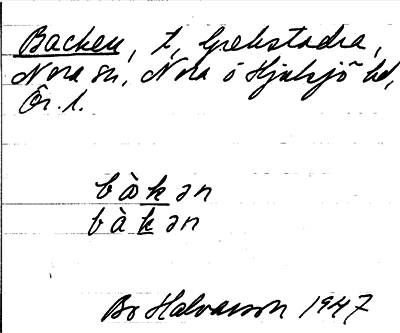 Backen, t, Grekstadra,
Nora sn, Nora o Hjulsjö hd,
Ör. l.
bàkən
bàkən
Bo Halvarson 1947